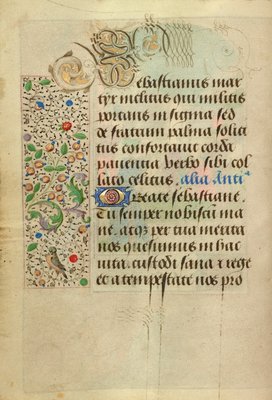 Sebastianus mar
tyr inclitus qui militis
portans in signa sed
de fratrum palma solicit
tus confortauit corda
pauentia verbo sibi col
lato celitus. alia Anti͂
O beate sebastiane.
Tu semper nobiscū ma
ne. atqȝ per tua merita
nos quesumus in hac
uita. custodi sana et rege
et a tempestate nos pro